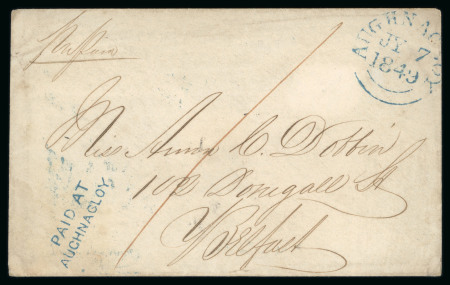 AUGHNACLOY
JY 7
1849
Miss Anna C. Dobbin
108 Donegall St
Belfast
PAID AT
AUGHNACLOY